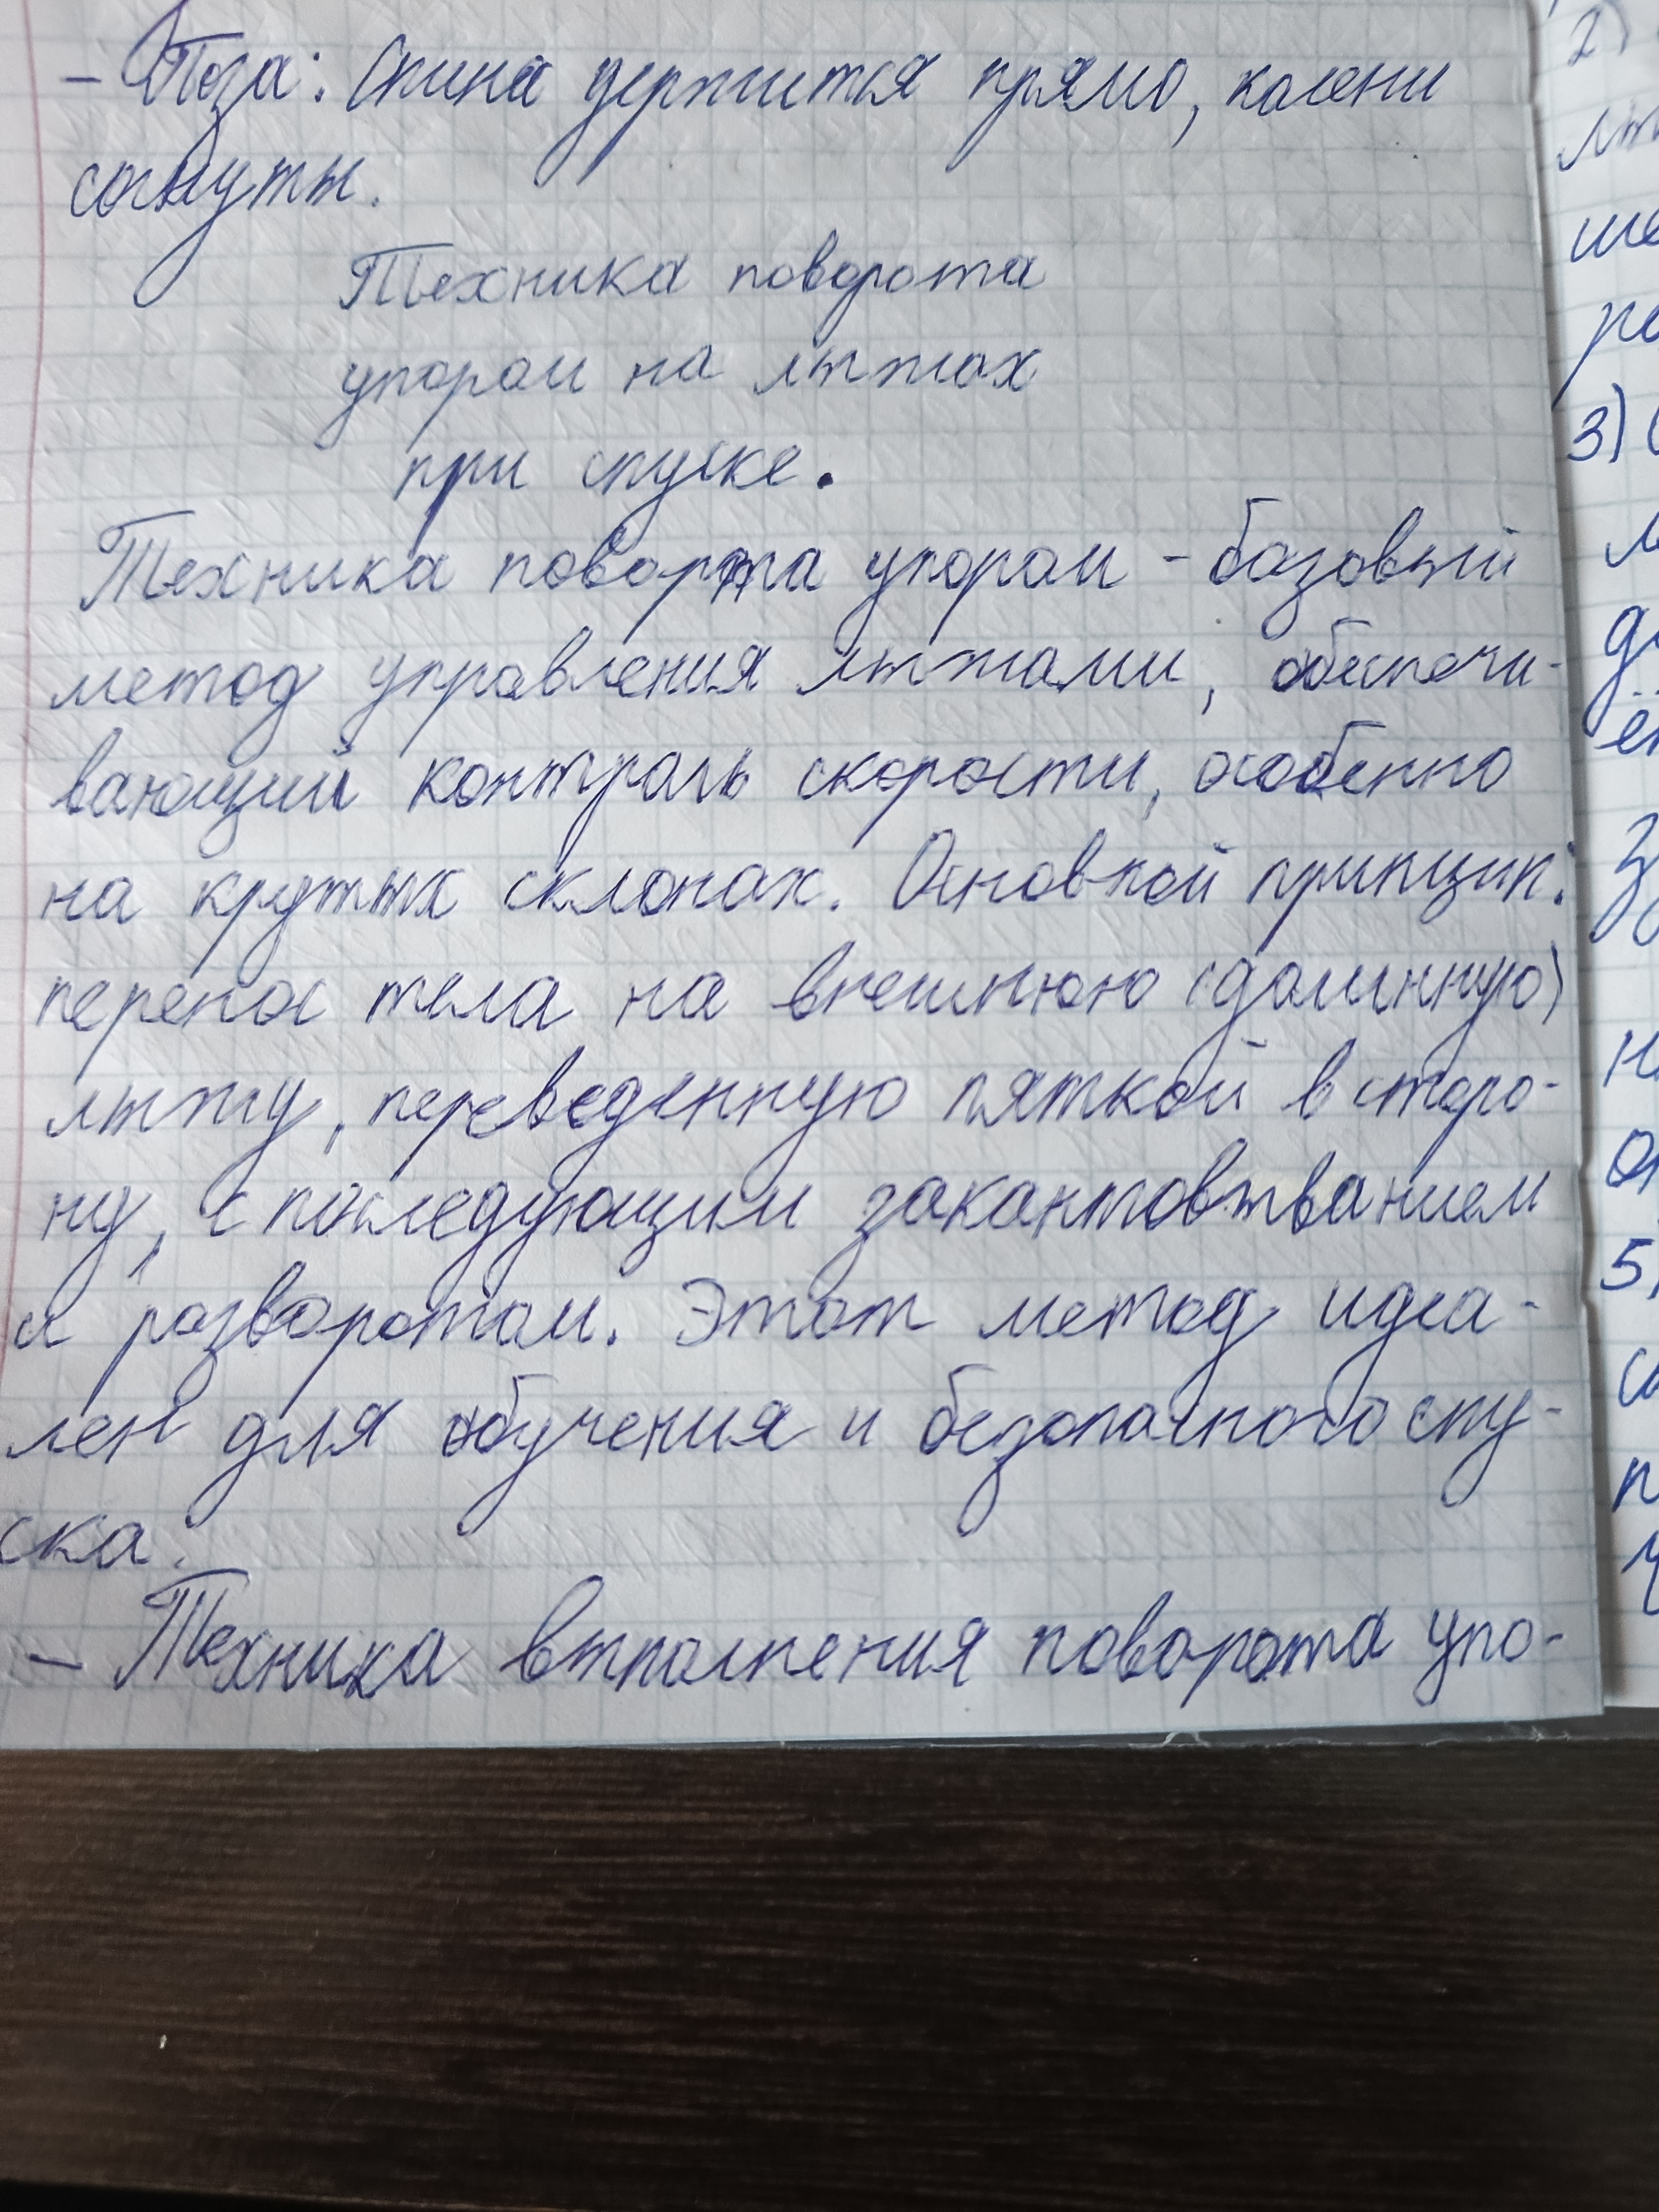 - Поза: Спина держится прямо, колени
согнуты.
Техника поворота
упором на лыжах
при спуске.
Техника поворота упором - базовый
метод управления лыжами, обеспечи-
вающий контроль скорости, особенно
на крутых склонах. Основной принцип:
перенос тела на внешнюю (долинную)
лыжу, переведенную пяткой в сторо-
ну, с последующим закантовыванием
и разворотом. Этот метод идеа-
лен для обучения и безопасного спу-
ска.
- Техника выполнения поворота упо-
2)
3)
5)